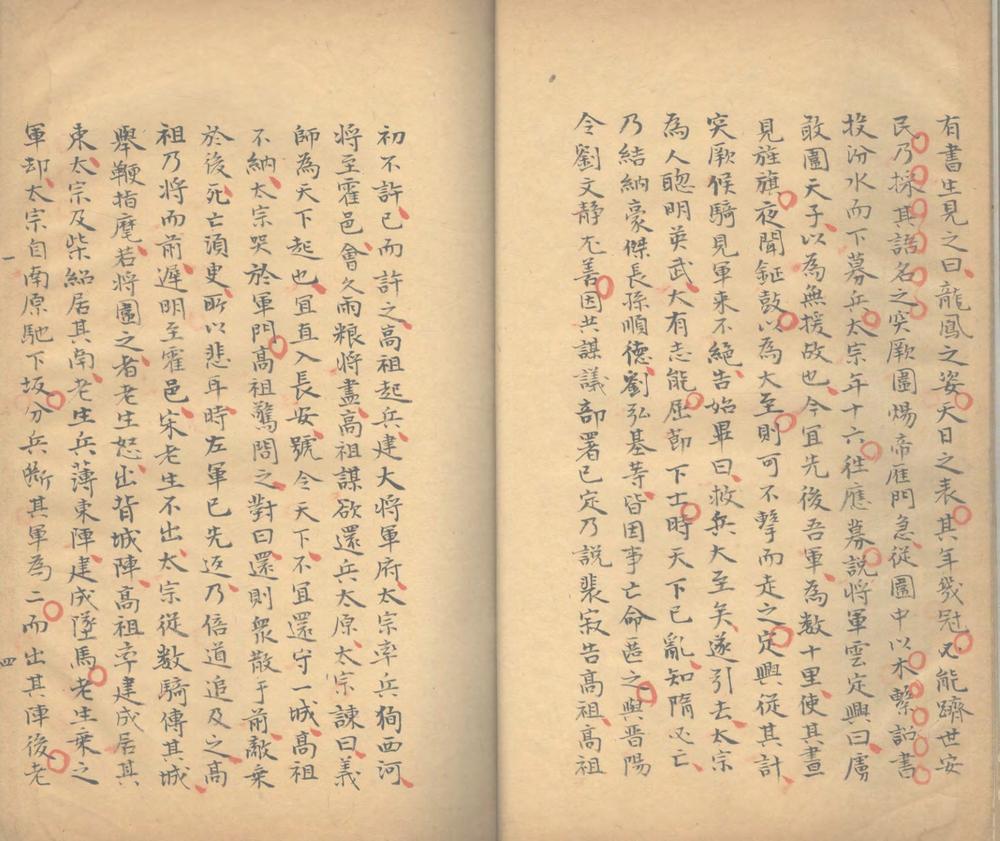 有書生見之曰龍鳳之姿天日之表其年幾冠必能濟世安
民乃採其語名之突厥圍煬帝雁門急從圍中以木繫詔書
投汾水而下募兵太宗年十六往應募說將軍雲定興曰虜
敢圍天子以為無援故也今宜先後吾軍為數十里使其晝
見旌旗夜聞鉦鼓以為大至則可不擊而走之定興從其計
突厥候騎見軍來不絕告始畢曰救兵大至矣遂引去太宗
為人聰明英武大有志能屈節下士時天下已亂知隋必亡
乃結納豪傑長孫順德劉弘基等皆因事亡命匿之與晋陽
令劉文靜尤善因共謀議部署已定乃說裴寂告高祖高祖
初不許已而許之高祖起兵建大將軍府太宗率兵狥西河
將至霍邑會久雨粮將盡高祖謀欲還兵太原太宗諫曰義
師為天下起也宜直入長安號令天下不宜還守一城高祖
不納太宗哭於軍門高祖驚問之對曰還則衆散于前敵乘
於後死亡須臾所以悲耳時左軍已先返乃倍道追及之高
祖乃將而前遲明至霍邑宋老生不出太宗從數騎傳其城
舉鞭指麾若將圍之者老生怒出背城陣高祖率建成居其
東太宗及柴紹居其南老生兵薄東陣建成墜馬老生乘之
軍却太宗自南原馳下坂分兵斷其軍為二而出其陣後老
一 四